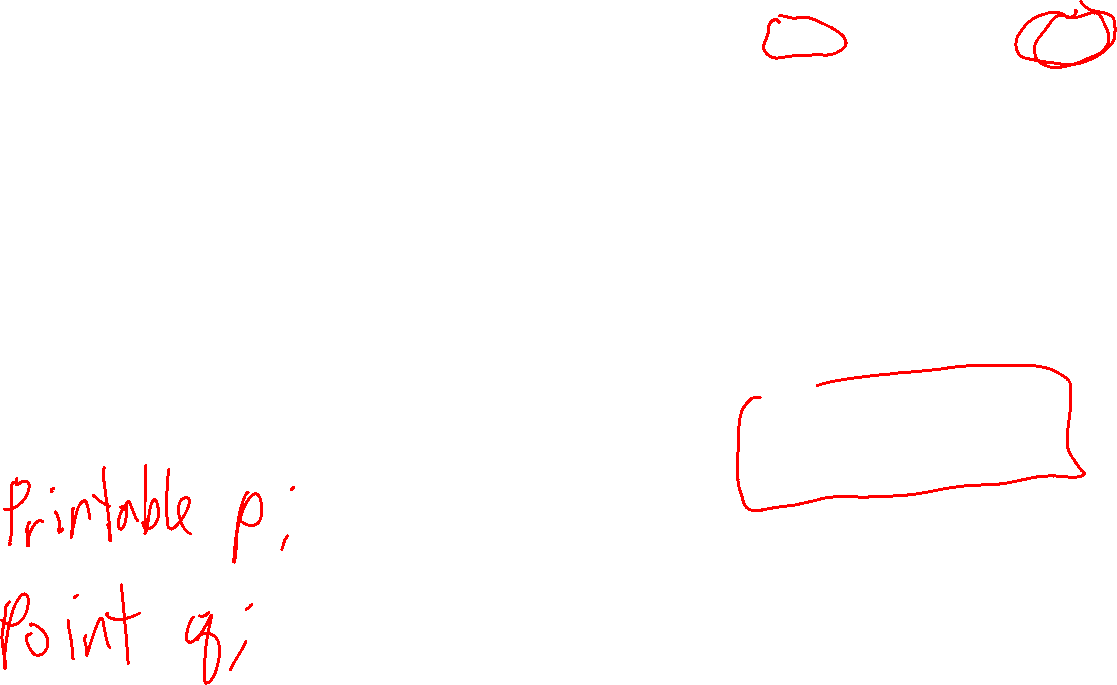 Printable p;
Point q;